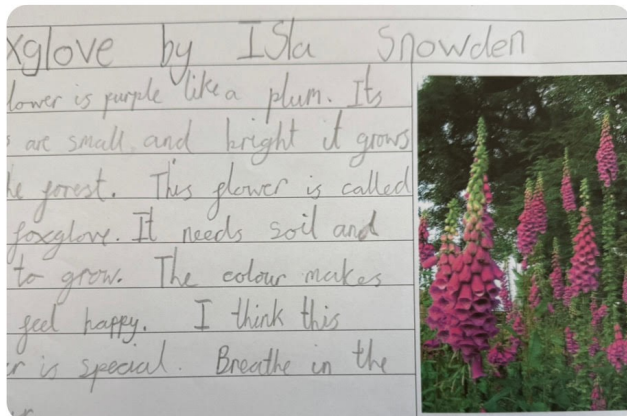 xglove by Isla Snowden
lower is purple like a plum. Its
s are small and bright it grows
he forest. This flower is called
foxglove. It needs soil and
to grow. The colour makes
feel happy. I think this
er is special. Breathe in the